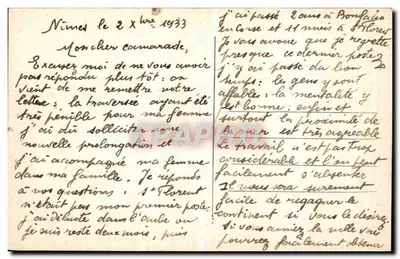 Nimes le 2 Xbre 1933
Mon cher camarade,
Excusez moi de ne vous avoir
pas répondu plus tôt : on
vient de me remettre votre
lettre ; la traversée ayant été
très pénible pour ma femme
j'ai dû solliciter une
nouvelle prolongation et
j'ai accompagné ma femme
dans ma famille. Je réponds
à vos questions : St Florent
n'était pas mon premier poste
j'ai débuté dans l'aube où
je suis resté deux mois, puis
j'ai passé 2 ans à Bonifacio
en corse et 11 mois à St Florent
Je vous avoue que je regrette
presque ce dernier poste
j'y ai passé du bon
temps : les gens y sont
affables la mentalité y
est bonne ; enfin et
surtout la proximité de
la mer est très agréable
Le travail n'est pas trop
considérable et l'on peut
facilement s'absenter
Il vous sera surement
facile de regagner le
continent si vous le désirez
Si vous aimez la ville vous
pourrez facilement obtenir